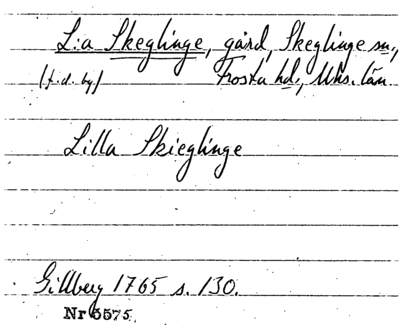 L:a Skeglinge, gård, Skeglinge sn.,
(f.d. by) Frosta hd., Mhs. län.
Lilla Skieglinge
Gillberg 1765 s. 130.
Nr 5575.